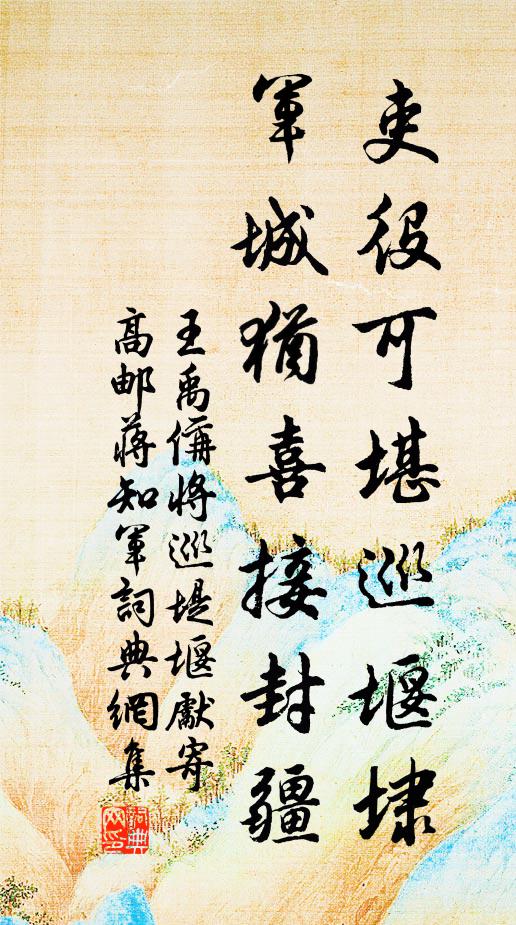 吏役可堪巡堰埭
軍城猶喜接封疆
王禹偁將巡堤堰獻寄
高邮蔣知軍詞典網集